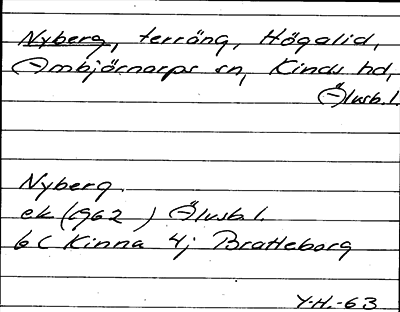 Nyberg, terräng, Högalid,
Ambjörnarps sn, Kinds hd,
Älvsb. l.
Nyberg.
ek (1962 ) Älvsb. l.
6C Kinna 4j Brattleborg
Y.H.-63